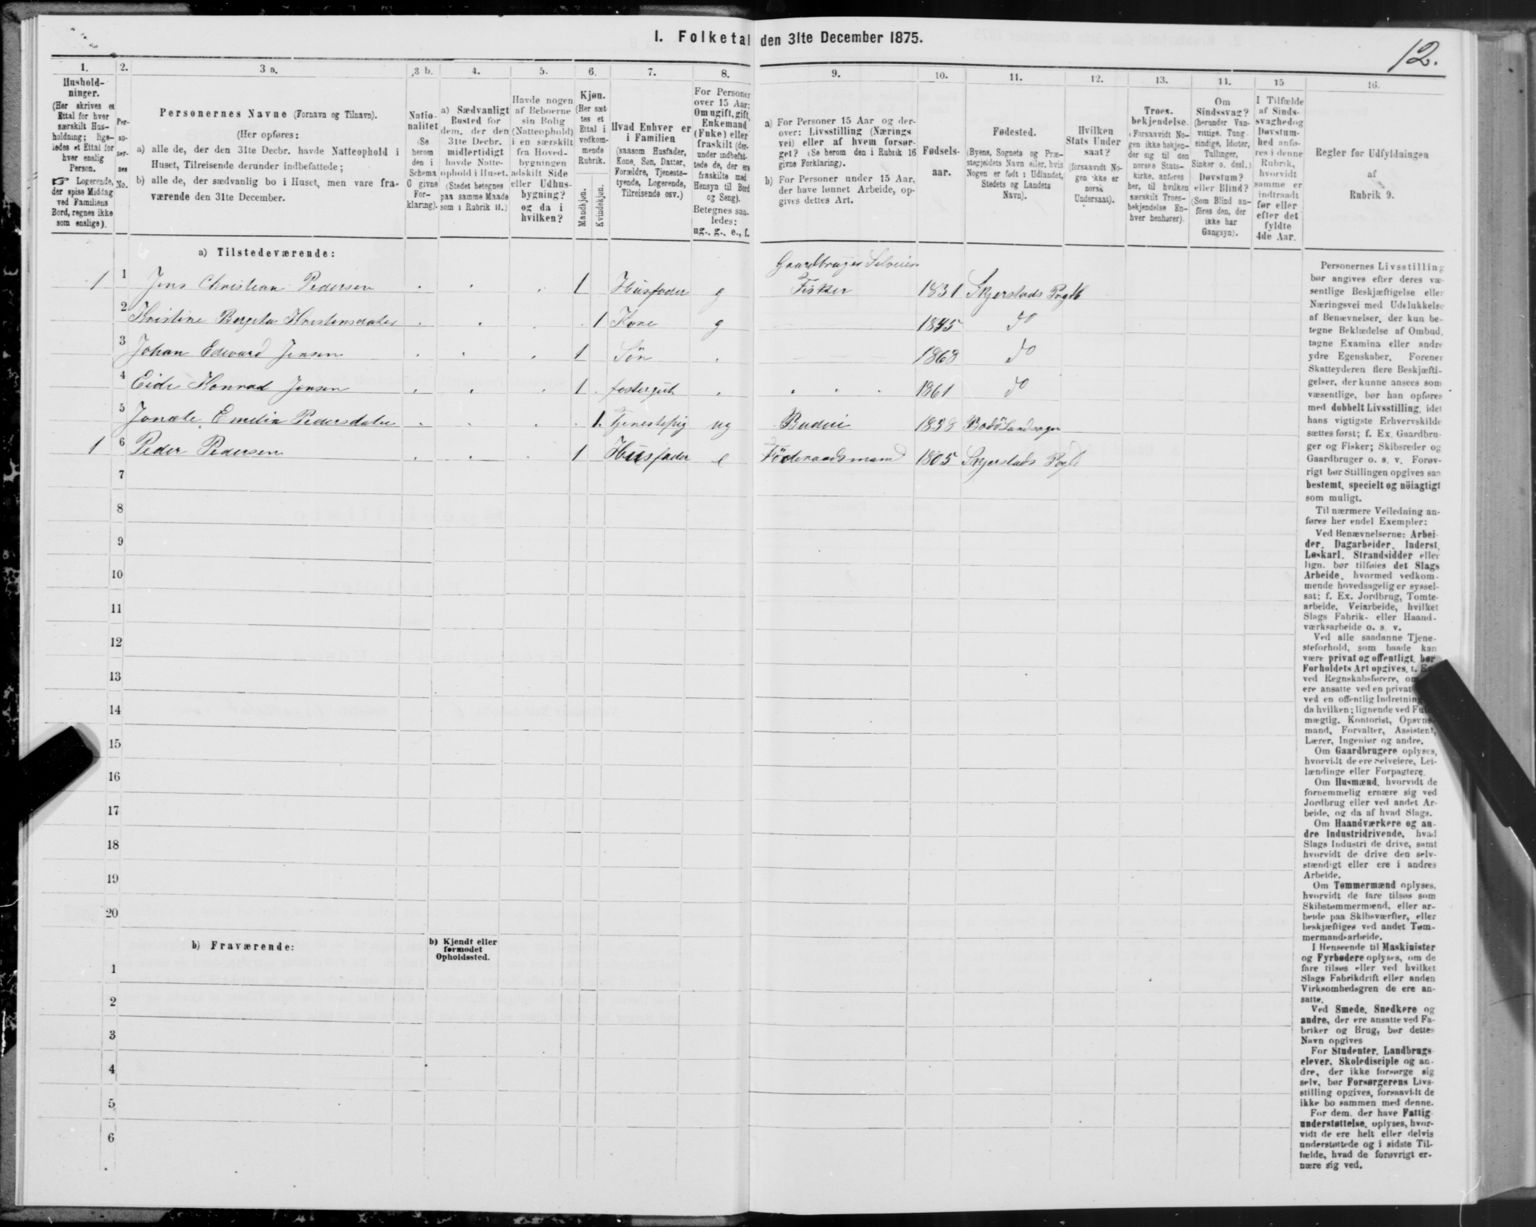 I. Folketal den 31te December 1875.
12.
1.
Hushold-
ninger.
(Her skrives et
Ettal for hver
særskilt Hus-
holdning; lige-
ledes et Ettal for
hver enslig
Person.
☞ Logerende,
der spise Middag
ved Familiens
Bord, regnes ikke
som enslige).
2.
Per-
so-
ner-
nes
No.
3 a.
Personernes Navne (Fornavn og Tilnavn).
(Her opføres:
a) alle de, der den 31te Decbr. havde Natteophold i
Huset, Tilreisende derunder indbefattede;
b) alle de, der sædvanlig bo i Huset, men vare fra-
værende den 31te December.
3 b.
Natio-
nalitet
(Se
herom
den i
Schema
O givne
For-
klaring).
4.
a) Sædvanligt
Bosted for
dem, der den
31te Decbr.
midlertidigt
havde Natte-
ophold i Huset.
(Stedet betegnes
paa samme Maade
som i Rubrik 11.)
5.
Havde nogen
af Beboerne
sin Bolig
(Natteophold)
i en særskilt
fra Hoved-
bygningen
adskilt Side
eller Udhus-
bygning?
og da i
hvilken?
6.
Kjøn.
(Her sæt-
tes et
Ettal i
vedkom-
mende
Rubrik.
Mandkjøn.
Kvindekjøn.
7.
Hvad Enhver er
i Familien
(saasom Husfader,
Kone, Søn, Datter,
Forældre, Tjeneste-
tyende, Logerende,
Tilreisende osv.)
8.
For Personer
over 15 Aar:
Om ugift, gift,
Enkemand
(Enke) eller
fraskilt (der-
under indbefat-
tede de, der ere
fraskilte med
Hensyn til Bord
og Seng).
Betegnes saa-
ledes:
ug., g., e., f.
9.
a) For Personer 15 Aar og der-
over: Livsstilling (Nærings-
vei) eller af hvem forsør-
get? (Se herom den i Rubrik 16
givne Forklaring).
b) For Personer under 15 Aar,
der have lønnet Arbeide, op-
gives dettes Art.
10.
Fødsels-
aar.
11.
Fødested.
(Byens, Sognets og Præ-
stegjeldets Navn eller, hvis
Nogen er født i Udlandet,
Stedets og Landets
Navn).
12.
Hvilken
Stats Under-
saat?
(forsaavidt No-
gen ikke er
norsk
Undersaat).
13.
Troes-
bekjendelse.
(Forsaavidt No-
gen ikke bekjen-
der sig til den
norske Stats-
kirke, anføres
her, til hvilken
særskilt Troes-
bekjendelse En-
hver henhører).
14.
Om
Sindssvag?
(herunder Van-
vittige, Tung-
sindige, Idioter,
Tullinger,
Sinker o. desl.)
Døvstum?
eller Blind?
(Som Blind an-
føres den, der
ikke har
Gangsyn).
15
I Tilfælde
af Sinds-
svaghed og
Døvstum-
hed anfø-
res i denne
Rubrik,
hvorvidt
samme er
indtraadt
før eller
efter det
fyldte
4de Aar.
16.
Regler for Udfyldningen
af
Rubrik 9.
a) Tilstedeværende:
Gaardbruger Selveier
1 1 Jens Christian Pedersen 1 Husfader g Fisker 1831 Skjerstads Prgld
2 Kristine Bergita Kristensdatter 1 Kone g 1845 do
3 Johan Edevard Jensen 1 Søn 1868 do
4 Eide Konrad Jensen 1 fostergut 1861 do
5 Emelia Pedersdatter 1 Tjenestepig ug Budeie 1838 Bodø Landsogn
1 6 Peder Pedersen 1 Husfader e Föderaadsmand 1805 Skjerstads Prgld
7
8
9
10
11
12
13
14
15
16
17
18
19
20
b) Fraværende:
b) Kjendt eller
formodet
Opholdssted.
1
2
3
4
5
6
Personernes Livsstilling
bør angives efter deres væ-
sentlige Beskjæftigelse eller
Næringsvei med Udelukkelse
af Benævnelser, der kun be-
tegne Beklædelse af Ombud,
tagne Examina eller andre
ydre Egenskaber. Forener
Skatteyderen flere Beskjæfti-
gelser, der kunne ansees som
væsentlige, bør han opføres
med dobbelt Livsstilling, idet
hans vigtigste Erhvervskilde
sættes først; f. Ex. Gaardbru-
ger og Fisker; Skibsreder og
Gaardbruger o. s. v. Forøv-
rigt bør Stillingen opgives saa
bestemt, specielt og nöiagtigt
som muligt.
Til nærmere Veiledning an-
føres her endel Exempler:
Ved Benævnelserne: Arbei-
der, Dagarbeider, Inderst,
Løskarl, Strandsidder eller
lign. bør tilføies det Slags
Arbeide, hvormed vedkom-
mende hovedsagelig er syssel-
sat; f. Ex. Jordbrug, Tomte-
arbeide, Veiarbeide, hvilket
Slags Fabrik- eller Haand-
værksarbeide o. s. v.
Ved alle saadanne Tjene-
steforhold, som baade kan
være privat og offentligt, bør
Forholdets Art opgives, f. Ex.
ved Regnskabsførere, om
ere ansatte ved en privat
ved en offentlig Indretning,
da hvilken; lignende ved Fuld-
mægtig, Kontorist, Opsyns-
mand, Forvalter, Assistent,
Lærer, Ingeniør og andre.
Om Gaardbrugere oplyses,
hvorvidt de ere Selveiere, Lei-
lændinge eller Forpagtere.
Om Husmænd, hvorvidt de
fornemmelig ernære sig ved
Jordbrug eller ved andet Ar-
beide, og da af hvad Slags.
Om Haandværkere og an-
dre Industridrivende, hvad
Slags Industri de drive, samt
hvorvidt de drive den selv-
stændigt eller ere i andres
Arbeide.
Om Tømmermænd oplyses,
hvorvidt de fare tilsøs som
Skibstømmermænd, eller ar-
beide paa Skibsværfter, eller
beskjæftiges ved andet Tøm-
mermandsarbeide.
I Henseende til Maskinister
og Fyrbødere oplyses, om de
fare tilsøs eller ved hvilket
Slags Fabrikdrift eller anden
Virksomhedsgren de ere an-
satte.
Ved Smede, Snedkere og
andre, der ere ansatte ved Fa-
briker og Brug, bør dettes
Navn opgives
For Studenter, Landbrugs-
elever, Skoledisciple og an-
dre, der ikke forsørge sig
selv, bør Forsørgerens Livs-
stilling opgives, forsaavidt de
ikke bo sammen med denne.
For dem, der have Fattig-
understøttelse, oplyses, hvor-
vidt de ere helt eller delvis
understøttede og i sidste Til-
fælde, hvad de forøvrigt er-
nære sig ved.